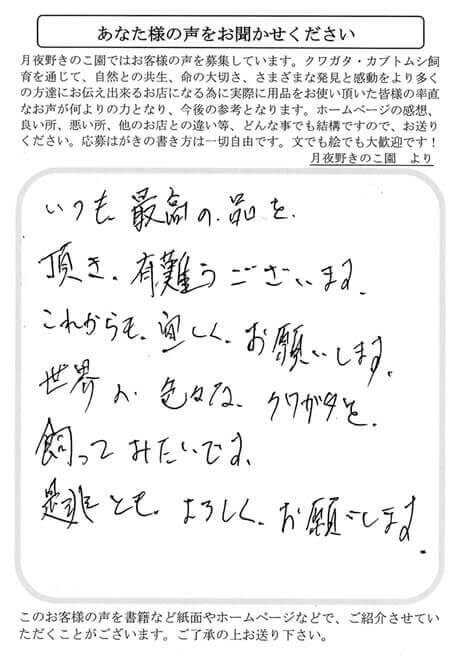 あなた様の声をお聞かせください
月夜野きのこ園ではお客様の声を募集しています。クワガタ・カブトムシ飼
育を通じて、自然との共生、命の大切さ、さまざまな発見と感動をより多く
の方達にお伝え出来るお店になる為に実際に用品をお使い頂いた皆様の率直
なお声が何よりの力となり、今後の参考となります。ホームページの感想、
良い所、悪い所、他のお店との違い等、どんな事でも結構ですので、お送り
ください。応募はがきの書き方は一切自由です。文でも絵でも大歓迎です！
月夜野きのこ園　より
いつも最高の品を、
頂き、有難うございます。
これからも、宜しく、お願いします。
世界の色々な、クワガタを、
飼ってみたいです。
是非とも、よろしく、お願いします。
このお客様の声を書籍など紙面やホームページなどで、ご紹介させてい
ただくことがございます。ご了承の上お送り下さい。